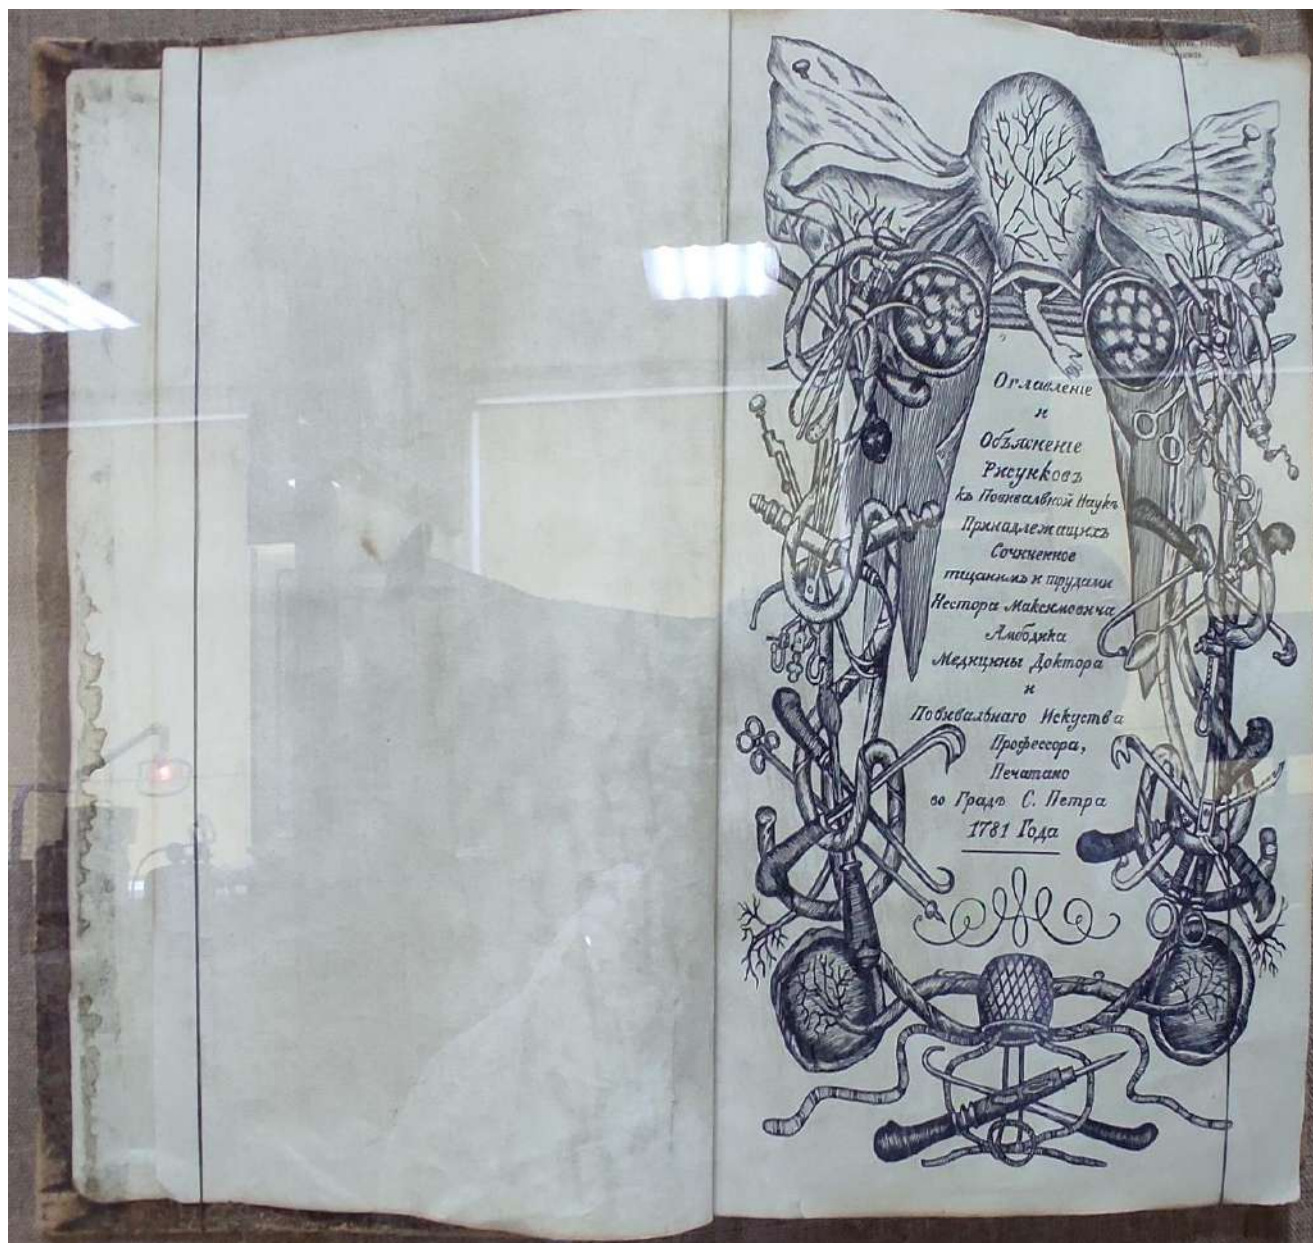 Оглавленіе
и
Объясненіе
Рисунковъ
къ Повивальной Наукѣ
Принадлежащихъ
Сочиненное
тщаніемъ и трудами
Нестора Максимовича
Амбодика
Медицины Доктора
и
Повивальнаго Искуства
Профессора,
Печатано
во Градѣ С. Петра
1781 Года